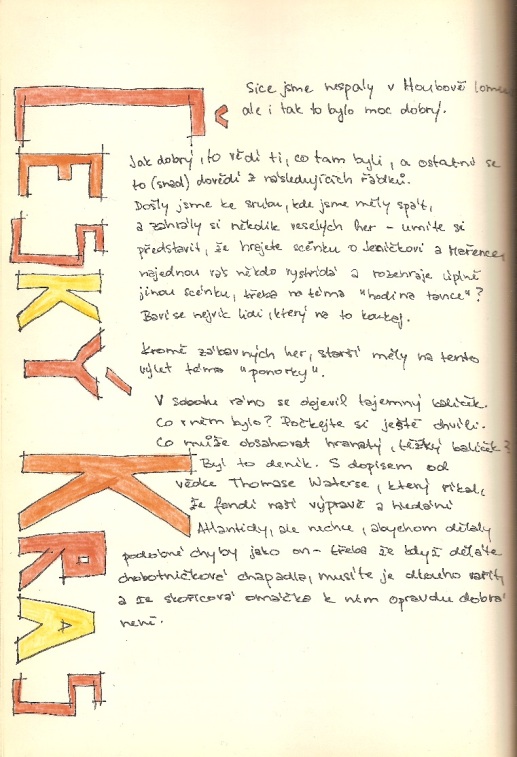 ČESKÝ KRAS
Sice jsme nespaly v Houbově lomu
ale i tak to bylo moc dobrý.
Jak dobrý, to vědí ti, co tam byli, a ostatní se
to (snad) dovědí z následujících řádků.
Došly jsme ke srubu, kde jsme měly spát,
a zahrály si několik veselých her – umíte si
představit, že hrajete scénku o Jeníčkovi a Mařence,
najednou vás někdo vystřídá a rozehraje úplně
jinou scénku, třeba na téma "hodina tance"?
Baví se nejvík lidi, který na to koukaj.
Kromě zábavných her, starší měly na tento
výlet téma "ponorky".
V sobotu ráno se objevil tajemný balíček.
Co v něm bylo? Počkejte si ještě chvíli.
Co může obsahovat hranatý, těžký balíček?
Byl to deník. S dopisem od
vědce Thomase Waterse, který říkal,
že fandí naší výpravě a hledání
Atlantidy, ale nechce, abychom dělaly
podobné chyby jako on – třeba že když děláte
chobotničkové chapadla, musíte je dlouho vařit,
a že skořicová omáčka k nim opravdu dobrá
není.